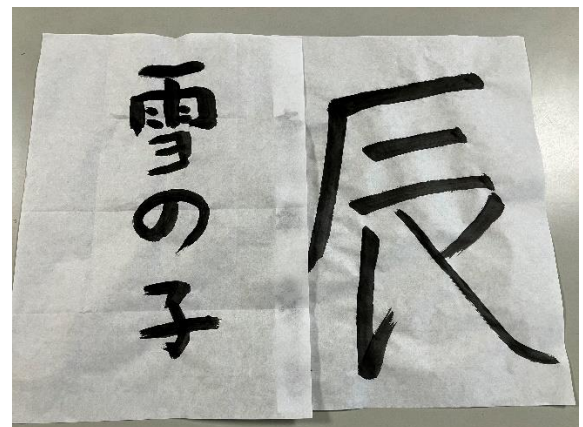 辰
雪の子